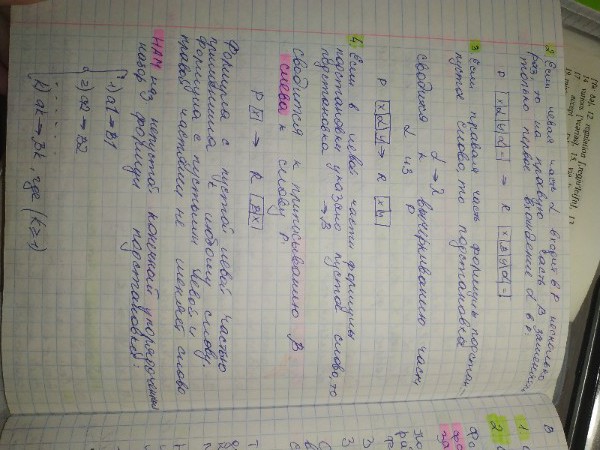 [ðə, ðɪ], 12. regulation [ˌreɡjʊˈleɪʃn], 13.
14. various [ˈveərɪəs], 15.
17. accept
2. Если левая часть α входит в P несколько
раз, то на правую часть B заменяется
только первое вхождение α в P.
P |x|α|y|α|-| → R |x|B|y|α|-|
3. Если правая часть формулы подстан-
пустое слово, то подстановка
α → λ
сводится к вычеркиванию части
α из P
P |x|α|y| → R |x|y|
4. Если в левой части формулы
подстановки указано пустое слово, то
подстановка → B
сводится к приписыванию B
слева к слову P.
P |x| → R |B|x|
Формула с пустой левой частью
применима к любому слову.
Формула с пустыми левой и
правой частями не меняет слово
НАМ наз непустой конечный упорядоченный
набор формул подстановки:
1) α1 → B1
2) α2 → B2
. . . . . .
k) αk → Bk, где (k ≥ 1)
В
1
2